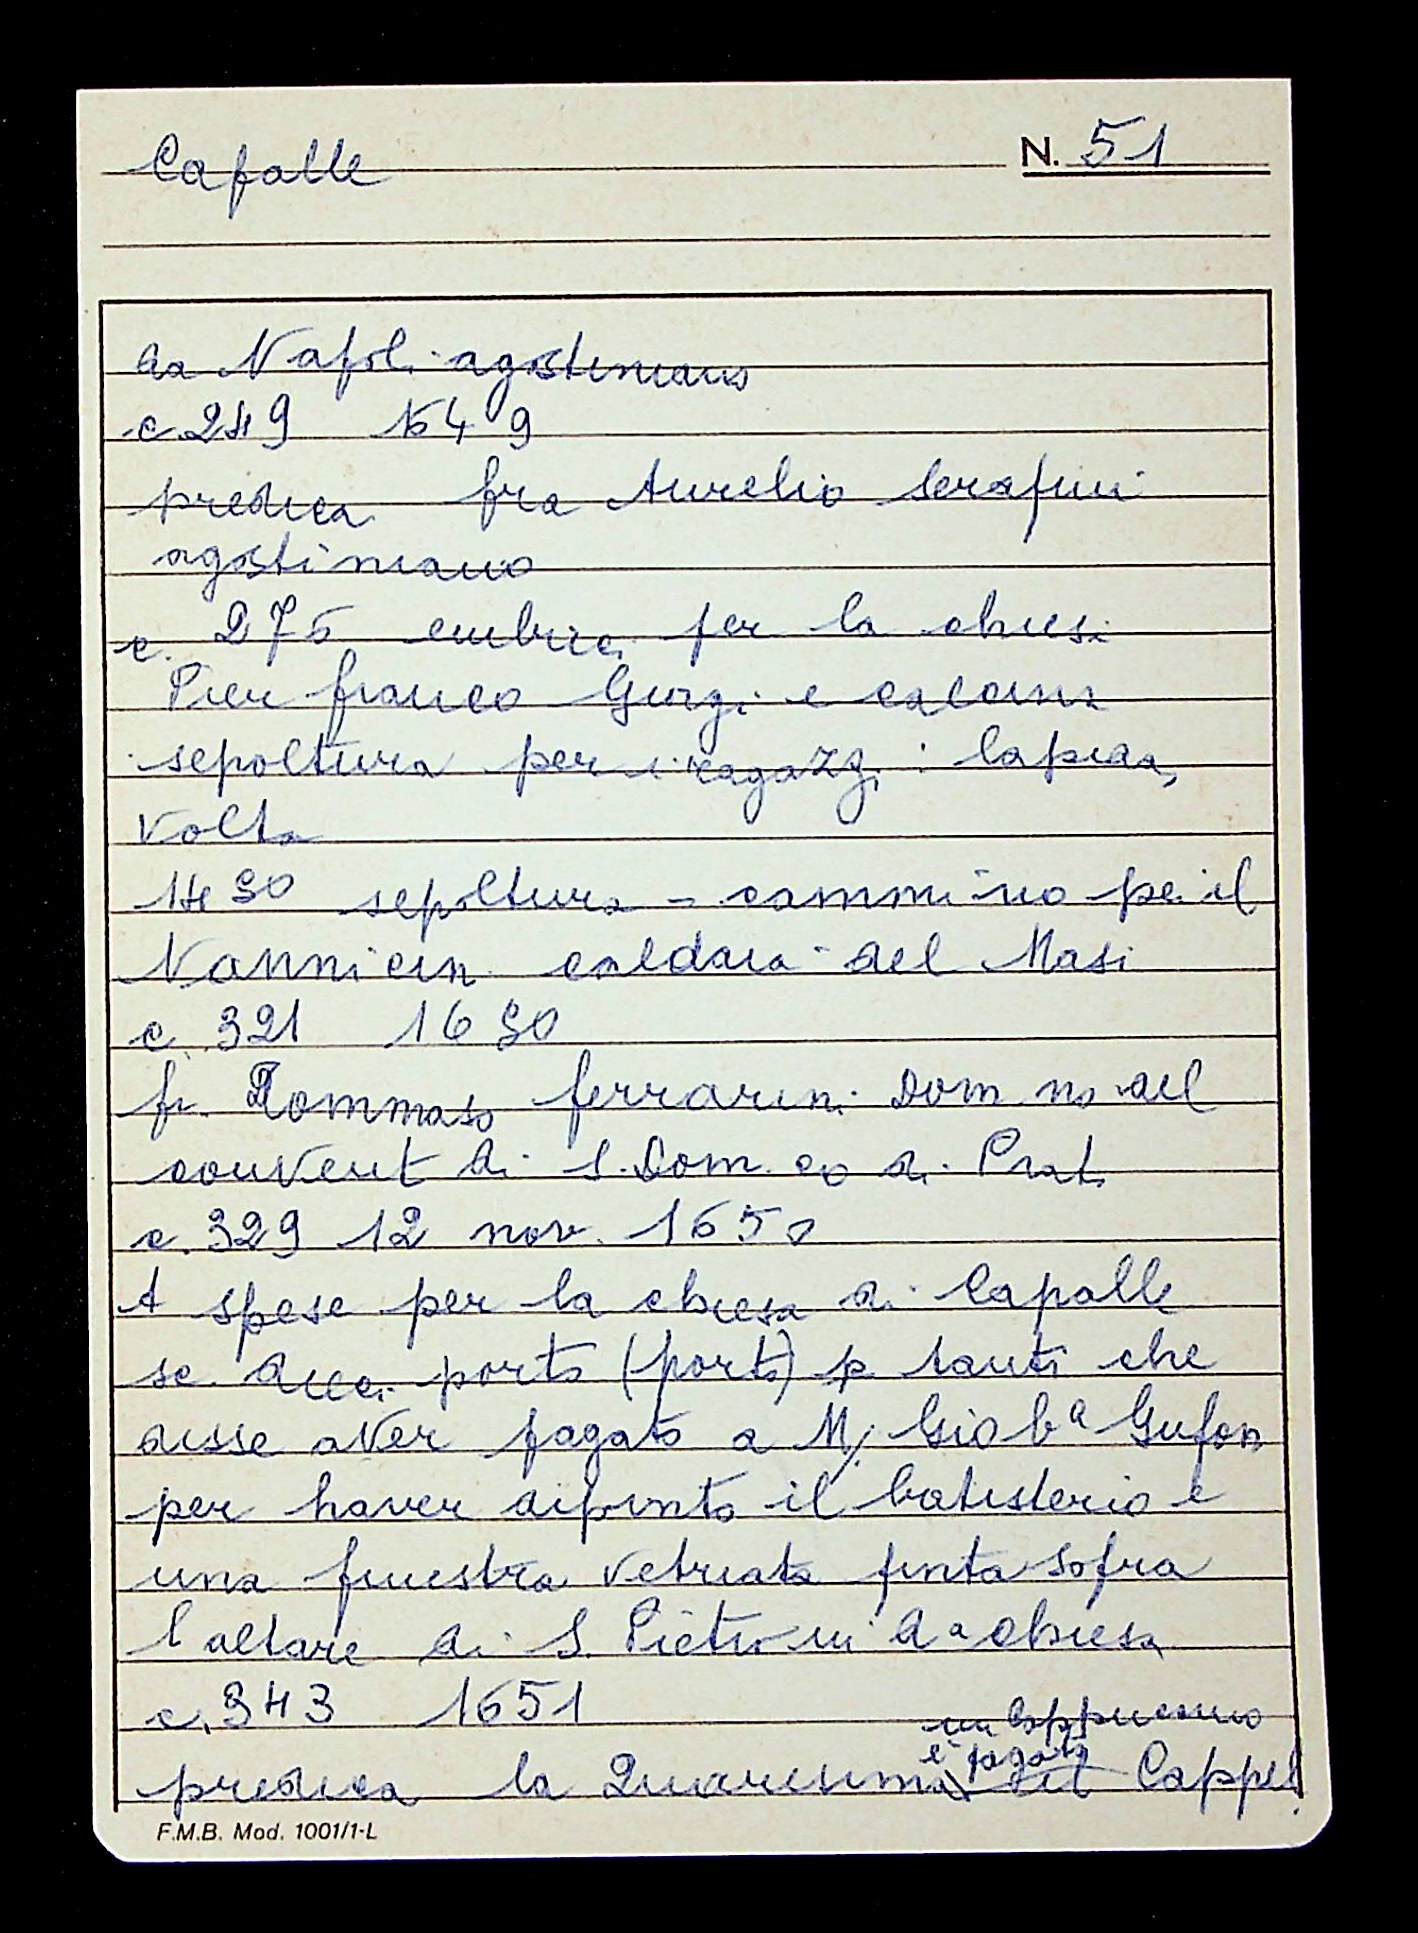 Capalle N. 51
da Napoli agostiniano
c 249 1649
predica fra Aurelio Serafini
agostiniano
c. 275 embrici per la chiesi
Pier franco Giorgi e calcina
sepoltura per i ragazzi : lapida,
volta
sepoltura - cammino pe il
Nannicin caldaia del Masi
c. 321 1650
fr. Tommaso ferrarini Dom no del
convent di S. Dom. co di Prato
c. 329 12 nov. 1650
A spese per la chiesa di Capalle
se dieci porto (porto) p tanti che
disse aver pagato a M. Gio bª
per haver dipinto il batisterio e
una finestra vetriata finta sopra
l altare di S. Pietro in dª chiesa
c. 343 1651
un Cappuccino
è pagato
predica la Quaresima del Cappel
F.M.B. Mod. 1001/1-L